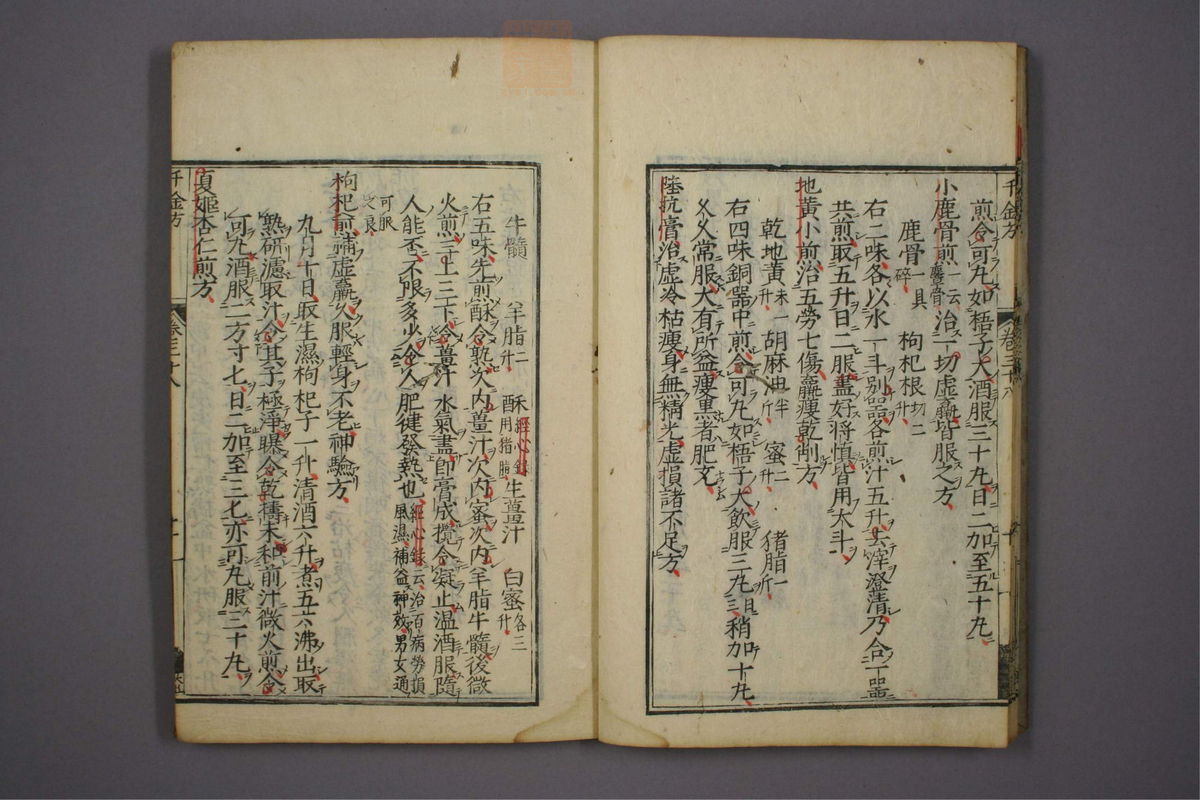 千金方
卷三十八
煎令可丸如梧子大酒服三十丸日二加至五十丸
小鹿骨煎一云麞骨治一切虛羸皆服之方
鹿骨一具碎 枸杞根切二升
右二味各以水一斗別器各煎汁五升去滓澄清乃合一器
共煎取五升日二服盡好將慎皆用大斗
地黃小煎治五勞七傷羸瘦乾削方
乾地黃末一升 胡麻油半斤 蜜二升 猪脂一斤
右四味銅器中煎令可丸如梧子大飲服三丸日三稍加十丸
久久常服大有所益瘦黑者肥充
陸抗膏治虛冷枯瘦身無精光虛損諸不足方
牛髓 羊脂二升 酥經心錄用猪脂 生薑汁 白蜜各三升
右五味先煎酥令熟次內薑汁次內蜜次內羊脂牛髓後微
火煎三上三下令薑汁水氣盡即膏成攪令凝止温酒服隨
人能否不限多少令人肥健發熱也經心錄云治百病勞損風濕補益神效男女通
可服之良
枸杞煎補虛羸久服輕身不老神驗方
九月十日取生濕枸杞子一升清酒六升煮五六沸出取
熟研濾取汁令其子極淨曝令乾擣末和前汁微火煎令
可丸酒服二方寸匕日二加至三匕亦可丸服三十丸
夏姬杏仁煎方
千金方
卷三十八